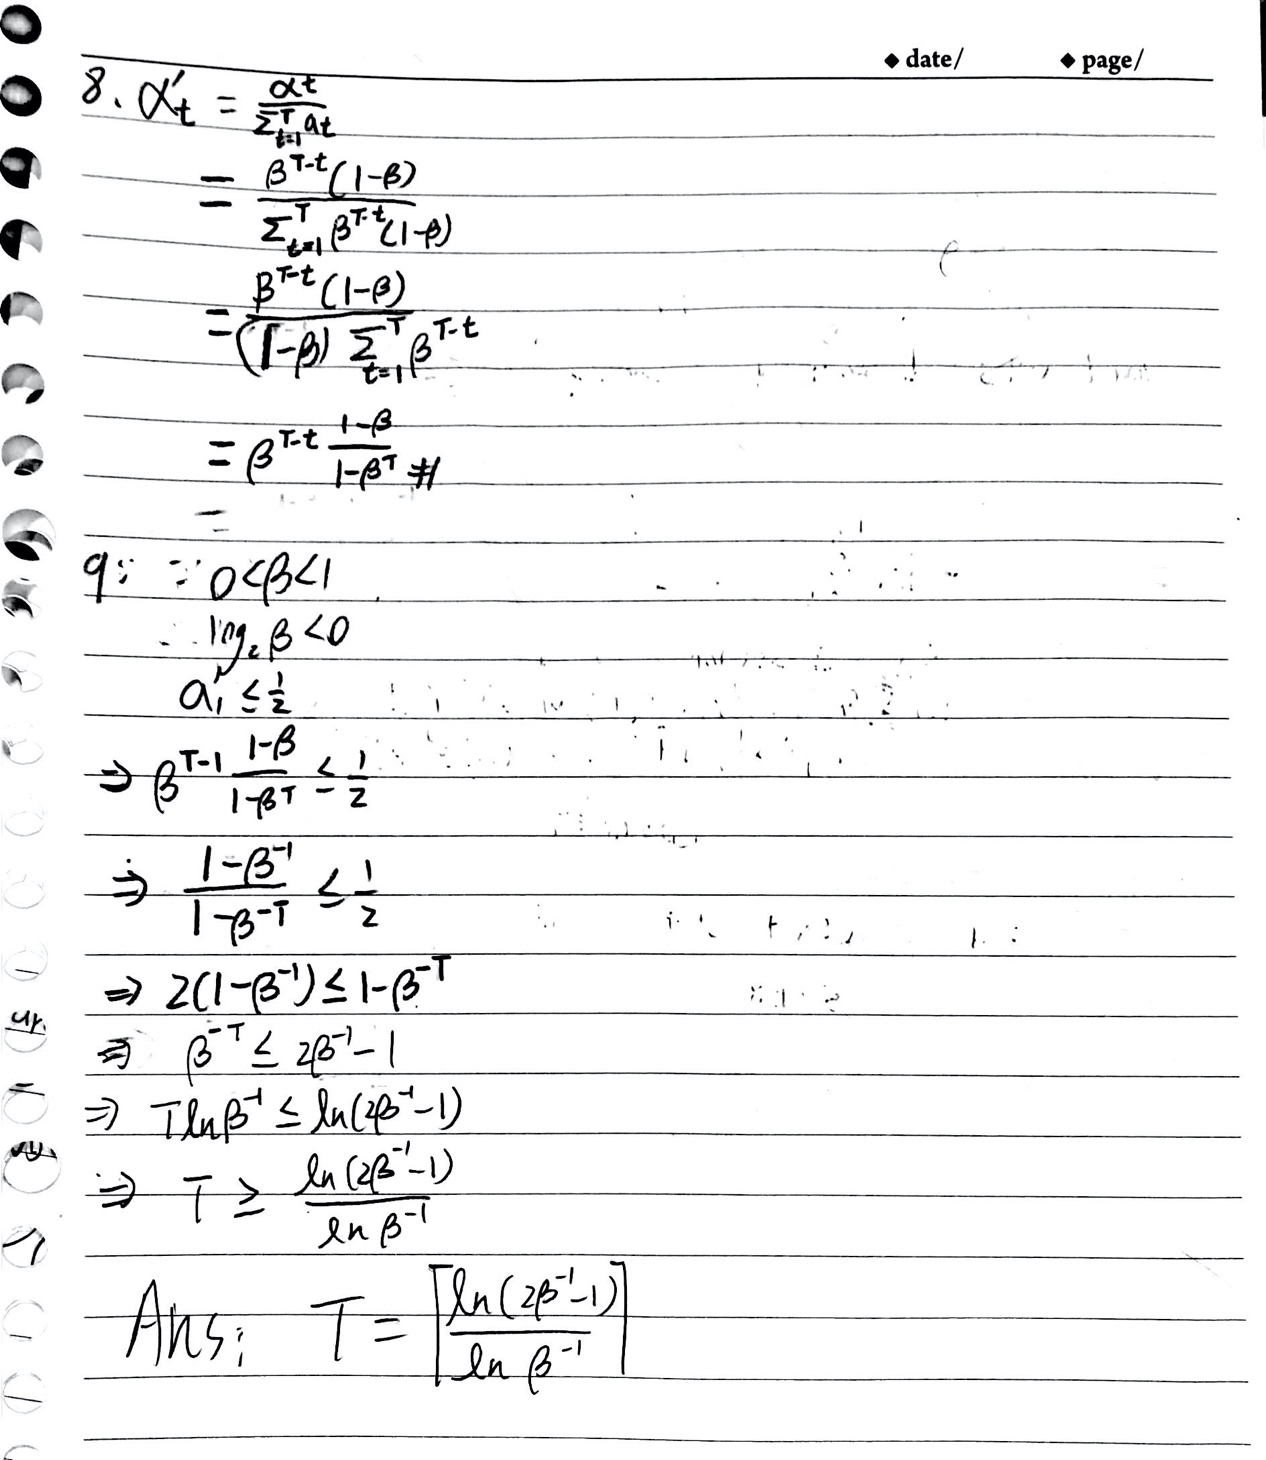 ◆ date/ ◆ page/
8. α't = αt / Σ_{t=1}^{T} at
= β^{T-t}(1-β) / Σ_{t=1}^{T} β^{T-t}(1-β)
= β^{T-t}(1-β) / (1-β) Σ_{t=1}^{T} β^{T-t}
= β^{T-t} (1-β)/(1-β^T) #
=
9: ∵ 0<β<1
∴ log₂ β <0
a'₁ ≤ 1/2
⇒ β^{T-1} (1-β)/(1-β^T) ≤ 1/2
⇒ (1-β^{-1})/(1-β^{-T}) ≤ 1/2
⇒ 2(1-β^{-1}) ≤ 1-β^{-T}
⇒ β^{-T} ≤ 2β^{-1}-1
⇒ T ln β^{-1} ≤ ln(2β^{-1}-1)
⇒ T ≥ ln(2β^{-1}-1) / ln β^{-1}
Ans: T = ⌈ ln(2β^{-1}-1) / ln β^{-1} ⌉